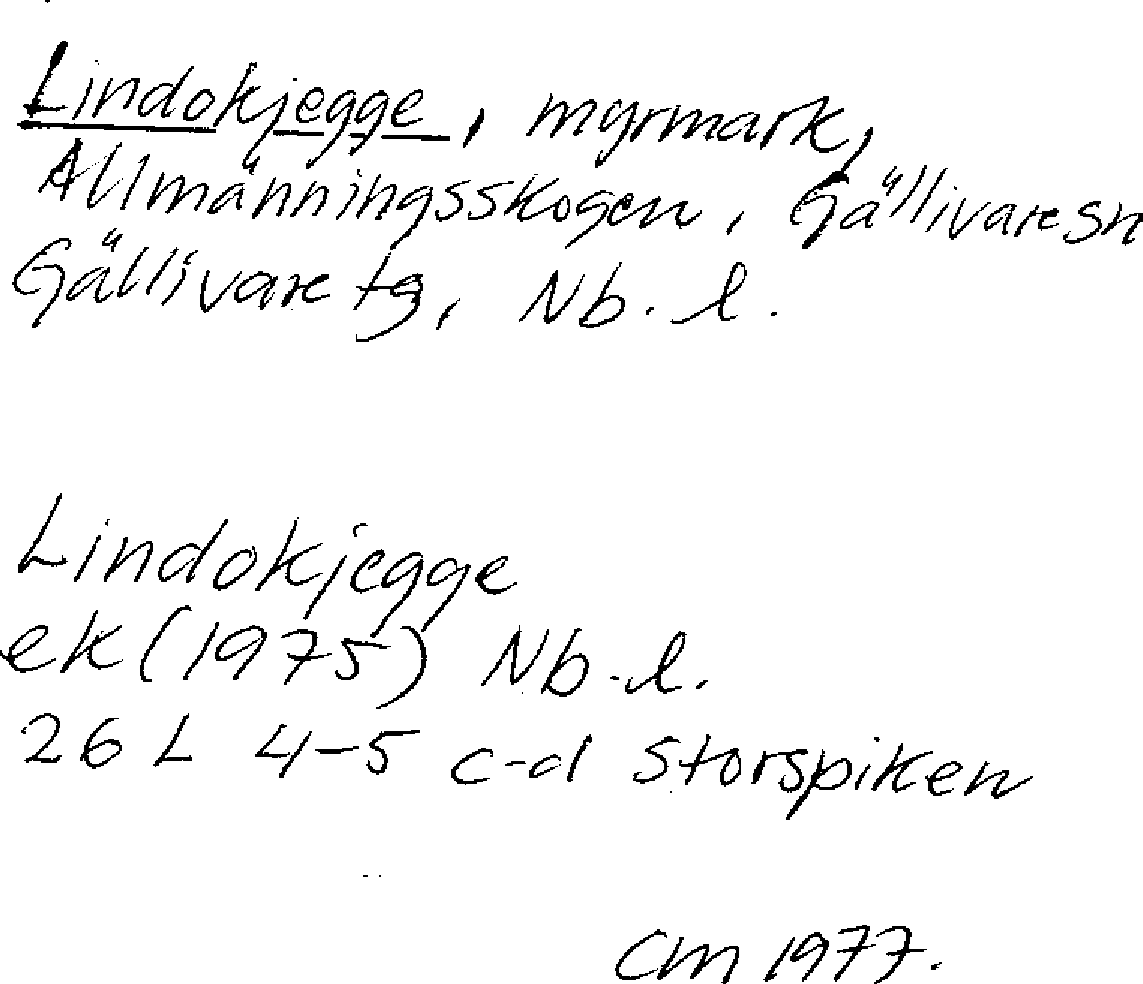 Lindokjegge, myrmark,
Allmänningsskogen, Gällivare sn
Gällivare tg, Nb. l.
Lindokjegge
ek (1975) Nb. l.
26 L 4-5 c-d Storspiken
CM 1977.